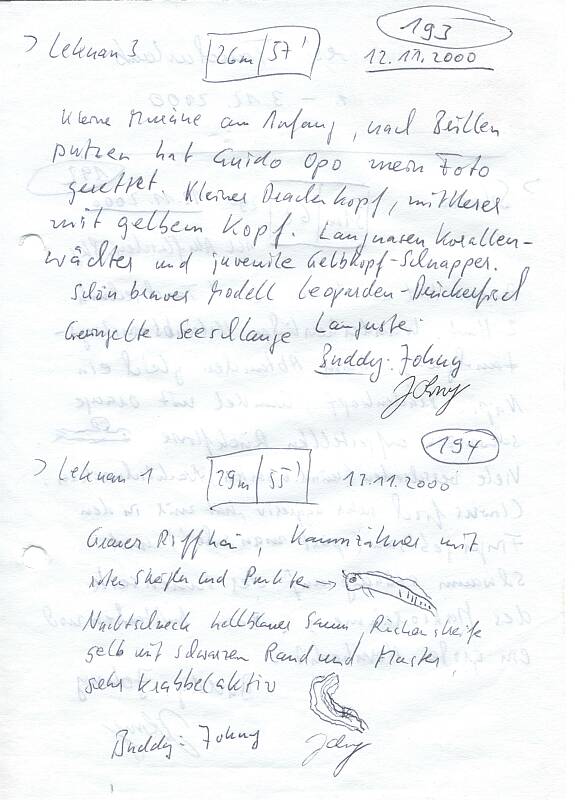 193
> Lekuan 3 26m 57' 12.11.2000
kleine Muräne am Anfang, nach Brillen
putzen hat Guido Opo mein Foto
gerettet. Kleiner Drachenkopf, mittlerer
mit gelbem Kopf. Langnasen Korallen-
wächter und juvenile Gelbkopf-Schnapper.
Schön braver Modell Leoparden-Drückerfisch
Geringelte Seeschlange Languste.
Buddy: Johny
Johny
194
> Lekuan 1 29m 55' 12.11.2000
Grauer Riffhai, Kammzähner mit
roten Streifen und Punkte →
Nacktschneck hellblauer Saum, Rückenstreife
gelb mit schwarzen Rand und Muster,
sehr krabbelaktiv
Buddy: Johny
Johny